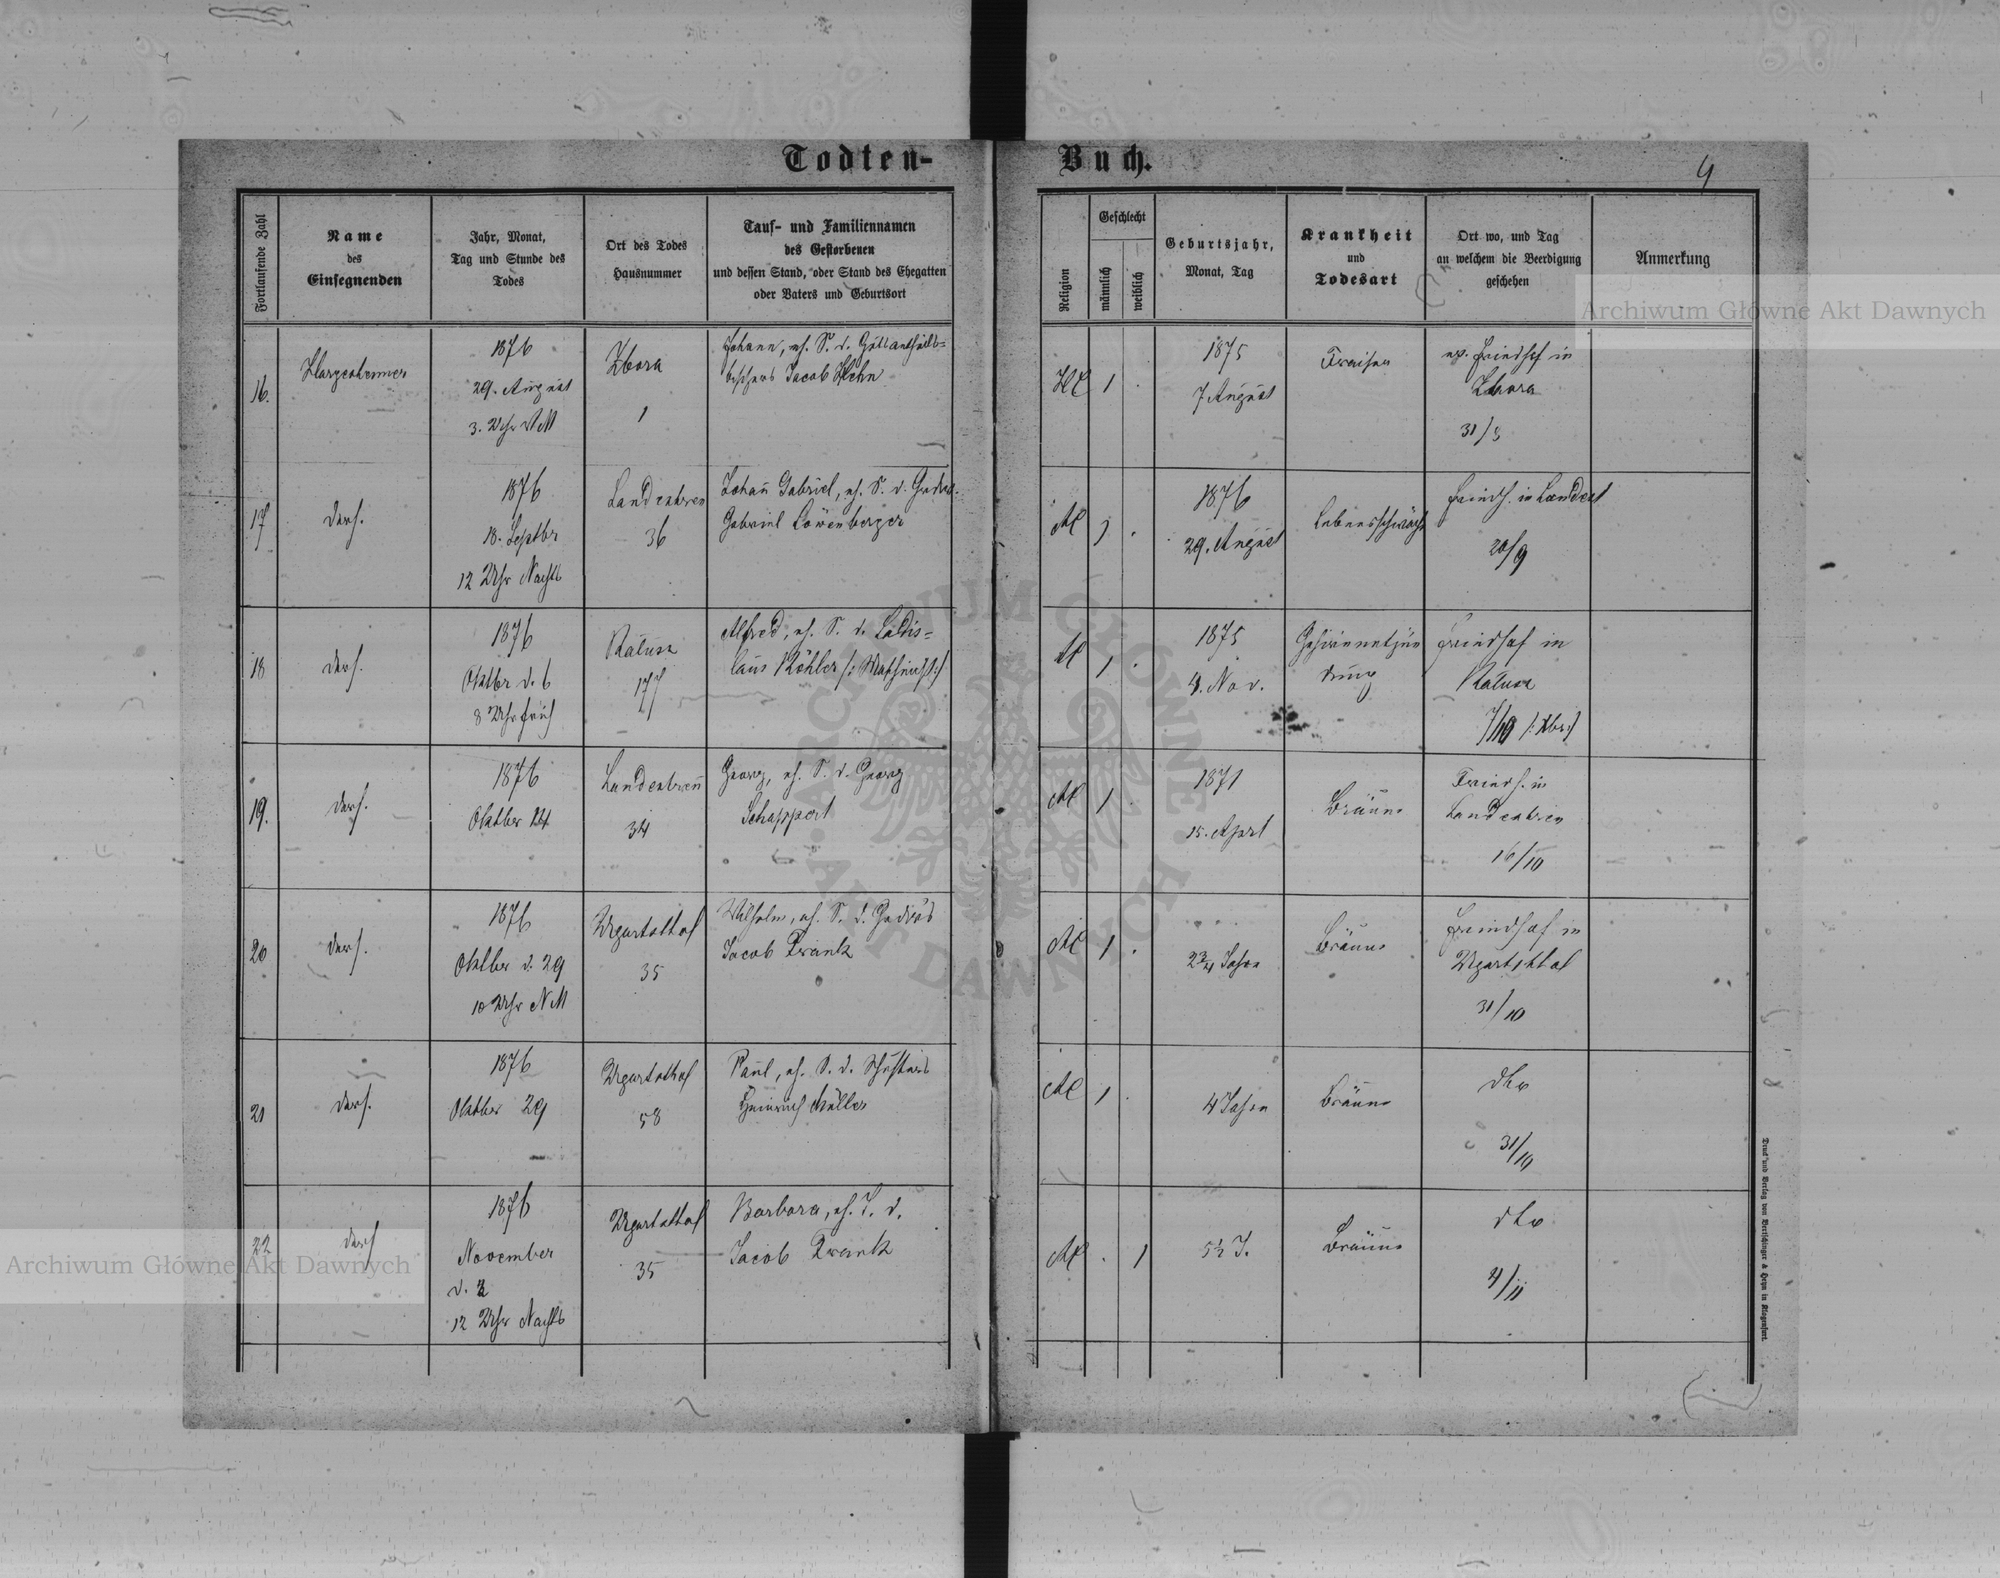 Todten-
Buch.
4
Fortlaufende Zahl
Name
des
Einsegnenden
Jahr, Monat,
Tag und Stunde des
Todes
Ort des Todes
Hausnummer
Tauf- und Familiennamen
des Gestorbenen
und dessen Stand, oder Stand des Ehegatten
oder Vaters und Geburtsort
Religion
Geschlecht
männlich
weiblich
Geburtsjahr,
Monat, Tag
Krankheit
und
Todesart
Ort wo, und Tag
an welchem die Beerdigung
geschehen
Anmerkung
16.
1876
29. August
3. Uhr
Ugartsthal
1
Johann, eh. S. d.
Jacob Hehn
1
1875
7 August
Fraisen
Friedhof in
31/8
17
ders.
1876
18. Septbr
12 Uhr Nachts
Landestreu
36
Johan̄ Gabriel, eh. S. d.
Gabriel Löwenberger
1
1876
29. August
Lebensschwäche
Friedh. in Landest
20/9
18
ders.
1876
Oktbr d. 6
8 Uhr früh
Kalusz
177
Alfred, eh. S. d. Ladis-
laus Köhler
1
1875
4. Nov.
Gehirnentzün
dung
Friedhof in
Kalusz
7/10
19.
ders.
1876
Oktber 14
Landestreu̅
34
Georg, eh. S. d. Georg
Schappert
1
1871
15. April
Bräune
Friedh. in
Landestreu
16/10
20
ders.
1876
Oktber d. 29
10 Uhr NM
Ugartsthal
35
Wilhelm, eh. S. d.
Jacob Frank
1
2 3/4 Jahre
Bräune
Friedhof in
Ugartsthal
31/10
21
ders.
1876
Oktber 29
Ugartsthal
58
Paul, eh. S. d. Schusters
Heinrich Müller
1
4 Jahre
Bräune
dto
31/10
22
ders
1876
November
d. 2
12 Uhr Nachts
Ugartsthal
35
Barbara, eh. T. d.
Jacob Frank
1
5 1/2 J.
Bräune
dto
4/11
Archiwum Główne Akt Dawnych
Archiwum Główne Akt Dawnych
ARCHIWUM GŁÓWNE · AKT DAWNYCH ·